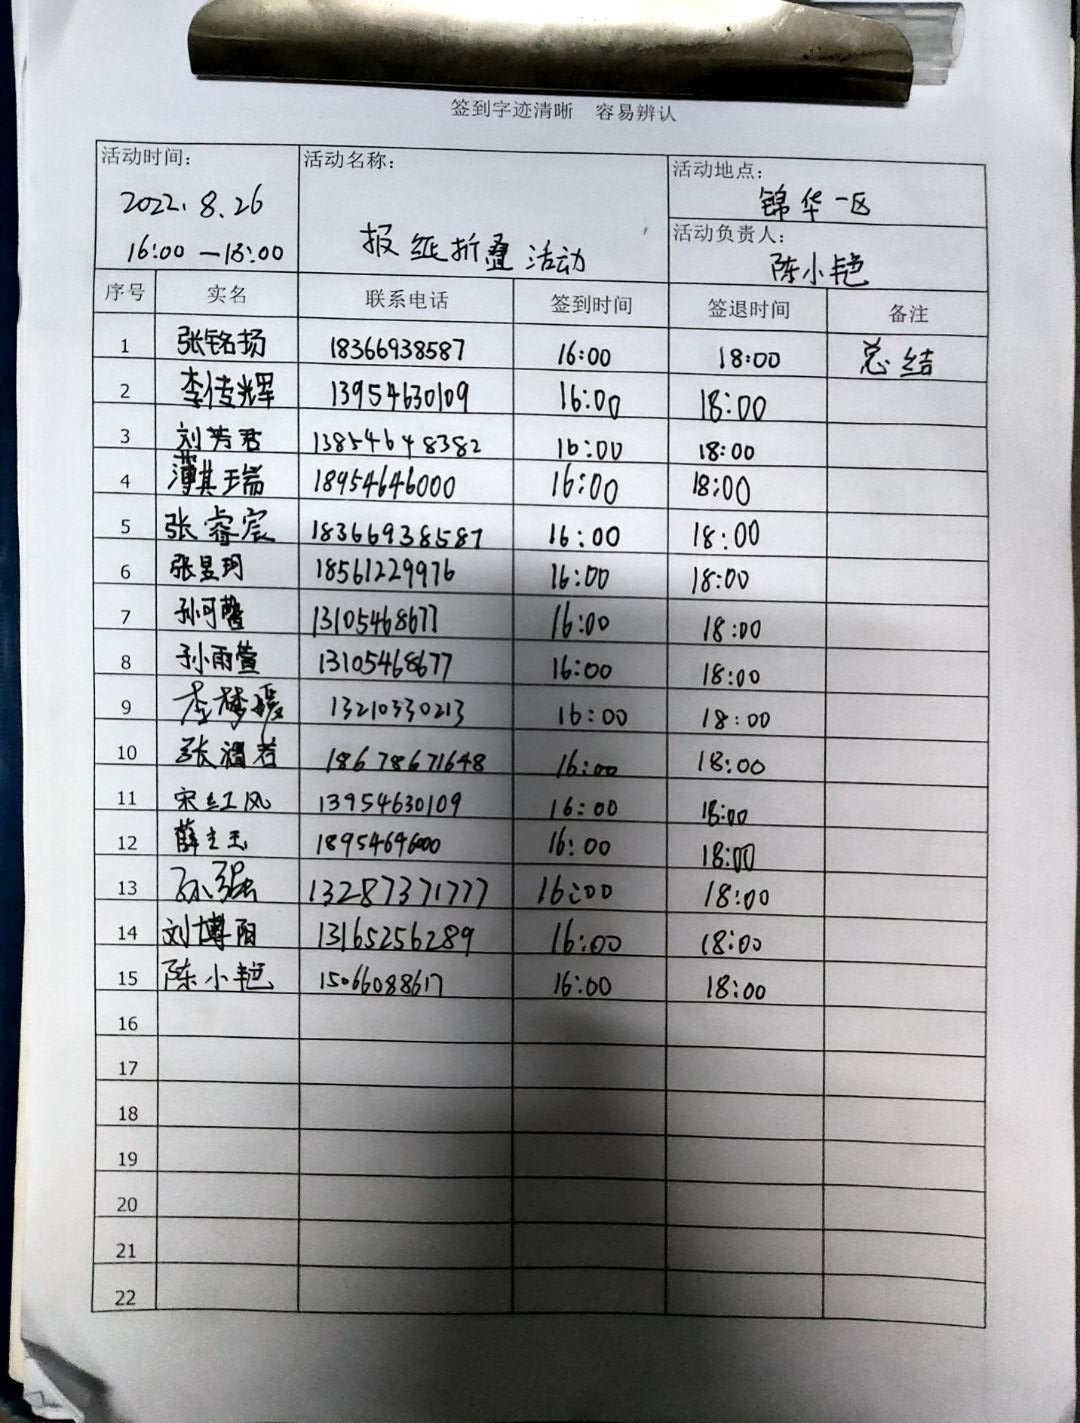 签到字迹清晰 容易辨认
活动时间: 活动名称: 活动地点:
2022.8.26 锦华一区
16:00—18:00 报纸折叠活动 活动负责人:
陈小艳
序号 实名 联系电话 签到时间 签退时间 备注
1 张铭扬 18366938587 16:00 18:00 总结
2 李传辉 13954630109 16:00 18:00
3 刘芳君 13854648382 16:00 18:00
4 薄其瑞 18954646000 16:00 18:00
5 张睿宸 18366938587 16:00 18:00
6 张昱珂 18561229976 16:00 18:00
7 孙可馨 13105468677 16:00 18:00
8 孙雨萱 13105468677 16:00 18:00
9 李梦媛 13210330213 16:00 18:00
10 张 18678671648 16:00 18:00
11 宋红风 13954630109 16:00 18:00
12 薛 18954646000 16:00 18:00
13 孙强 13287371777 16:00 18:00
14 刘博阳 13165256289 16:00 18:00
15 陈小艳 15066088617 16:00 18:00
16
17
18
19
20
21
22